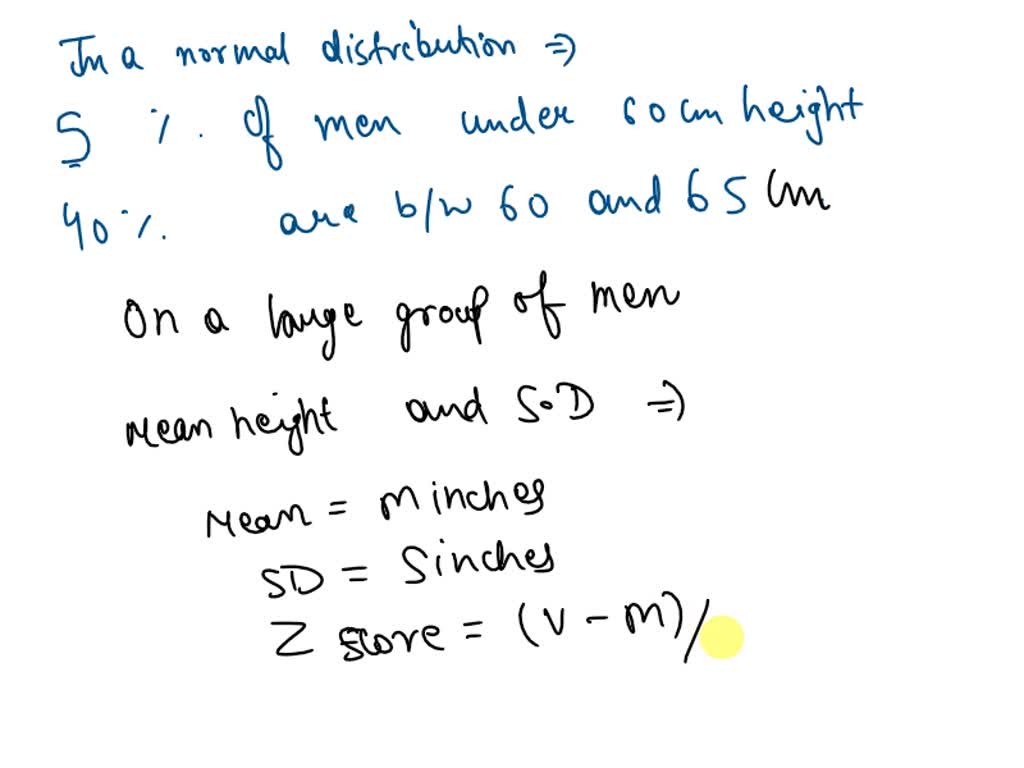 In a normal distribution ⇒
5 %. of men under 60 cm height
40 %. are b/w 60 and 65 cm
On a large group of men
Mean height and S.D ⇒
Mean = m inches
SD = S inches
Z score = (v - m)/